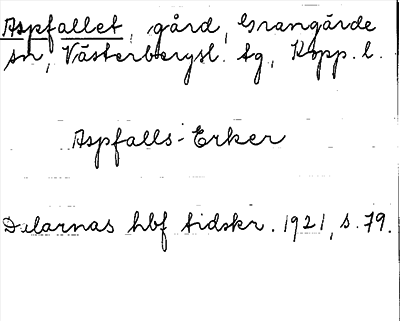 Aspfallet, gård, Grangärde
sn, Västerbergsl. tg, Kopp. l.
Aspfalls-Erker
Dalarnas hbf tidskr. 1921, s. 79.